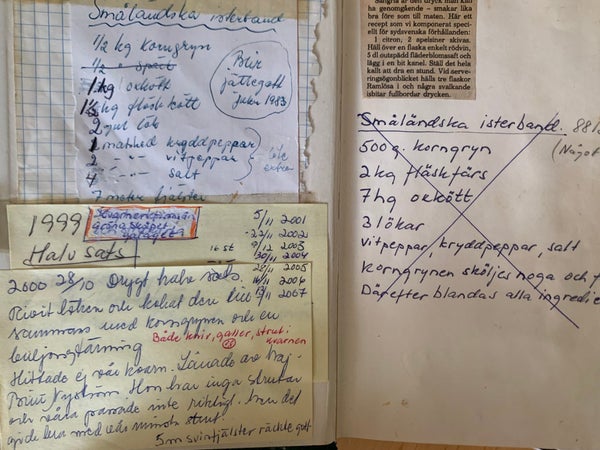 Småländska isterband
1/2 kg korngryn
1/2 "
1 kg oxkött
1 1/2 kg fläskkött
2 gul lök
1 matsked kryddpeppar
2 " " vitpeppar
4 " " salt
7 meter fjälster
Blir
jättegott
Julen 1983
1999
Halv sats
16 st
5/11 2001
22/11 2002
9/12 2003
30/11 2004
28/11 2005
16/11 2006
2007
2000 28/10 Drygt halv sats.
Rivit löken och kokat den
sammans med korngrynen och en
buljongtärning
Både kniv, galler, strut i
kvarnen
Hittade ej vår kvarn. Lånade av Maj-
Britt Nyström. Hon har inga strutar
och våra passade inte riktigt. men det
gick bra med vår minsta strut
5 m svinfjälster räckte gott
Sangria är den dryck man kan
ha genomgående – smakar lika
bra före som till maten. Här ett
recept som vi komponerat speci-
ellt för sydsvenska förhållanden:
1 citron, 2 apelsiner skivas.
Häll över en flaska enkelt rödvin,
5 dl outspädd fläderblomssaft och
lägg i en bit kanel. Ställ det hela
kallt att dra en stund. Vid serve-
ringsögonblicket hälls tre flaskor
Ramlösa i och några svalkande
isbitar fullbordar drycken.
Småländska isterband. 88
(Något
500 g. korngryn
2 kg fläskfärs
7 hg oxkött
3 lökar
vitpeppar, kryddpeppar, salt
Korngrynen sköljes noga och
Därefter blandas alla ingredie